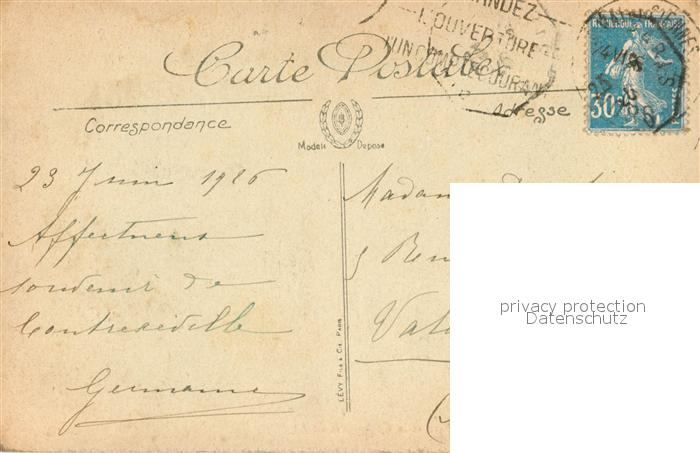 DEMANDEZ
L'OUVERTURE
D'UN COMPTE COURANT
RÉPUBLIQUE FRANÇAISE
30
Carte Postale
Correspondance
Adresse
Modèle Déposé
23 Juin 1926
Affectueux
souvenir de
Contrexéville
Germaine
LÉVY Fils & Cie, Paris
Madame
5 Rue
privacy protection
Datenschutz